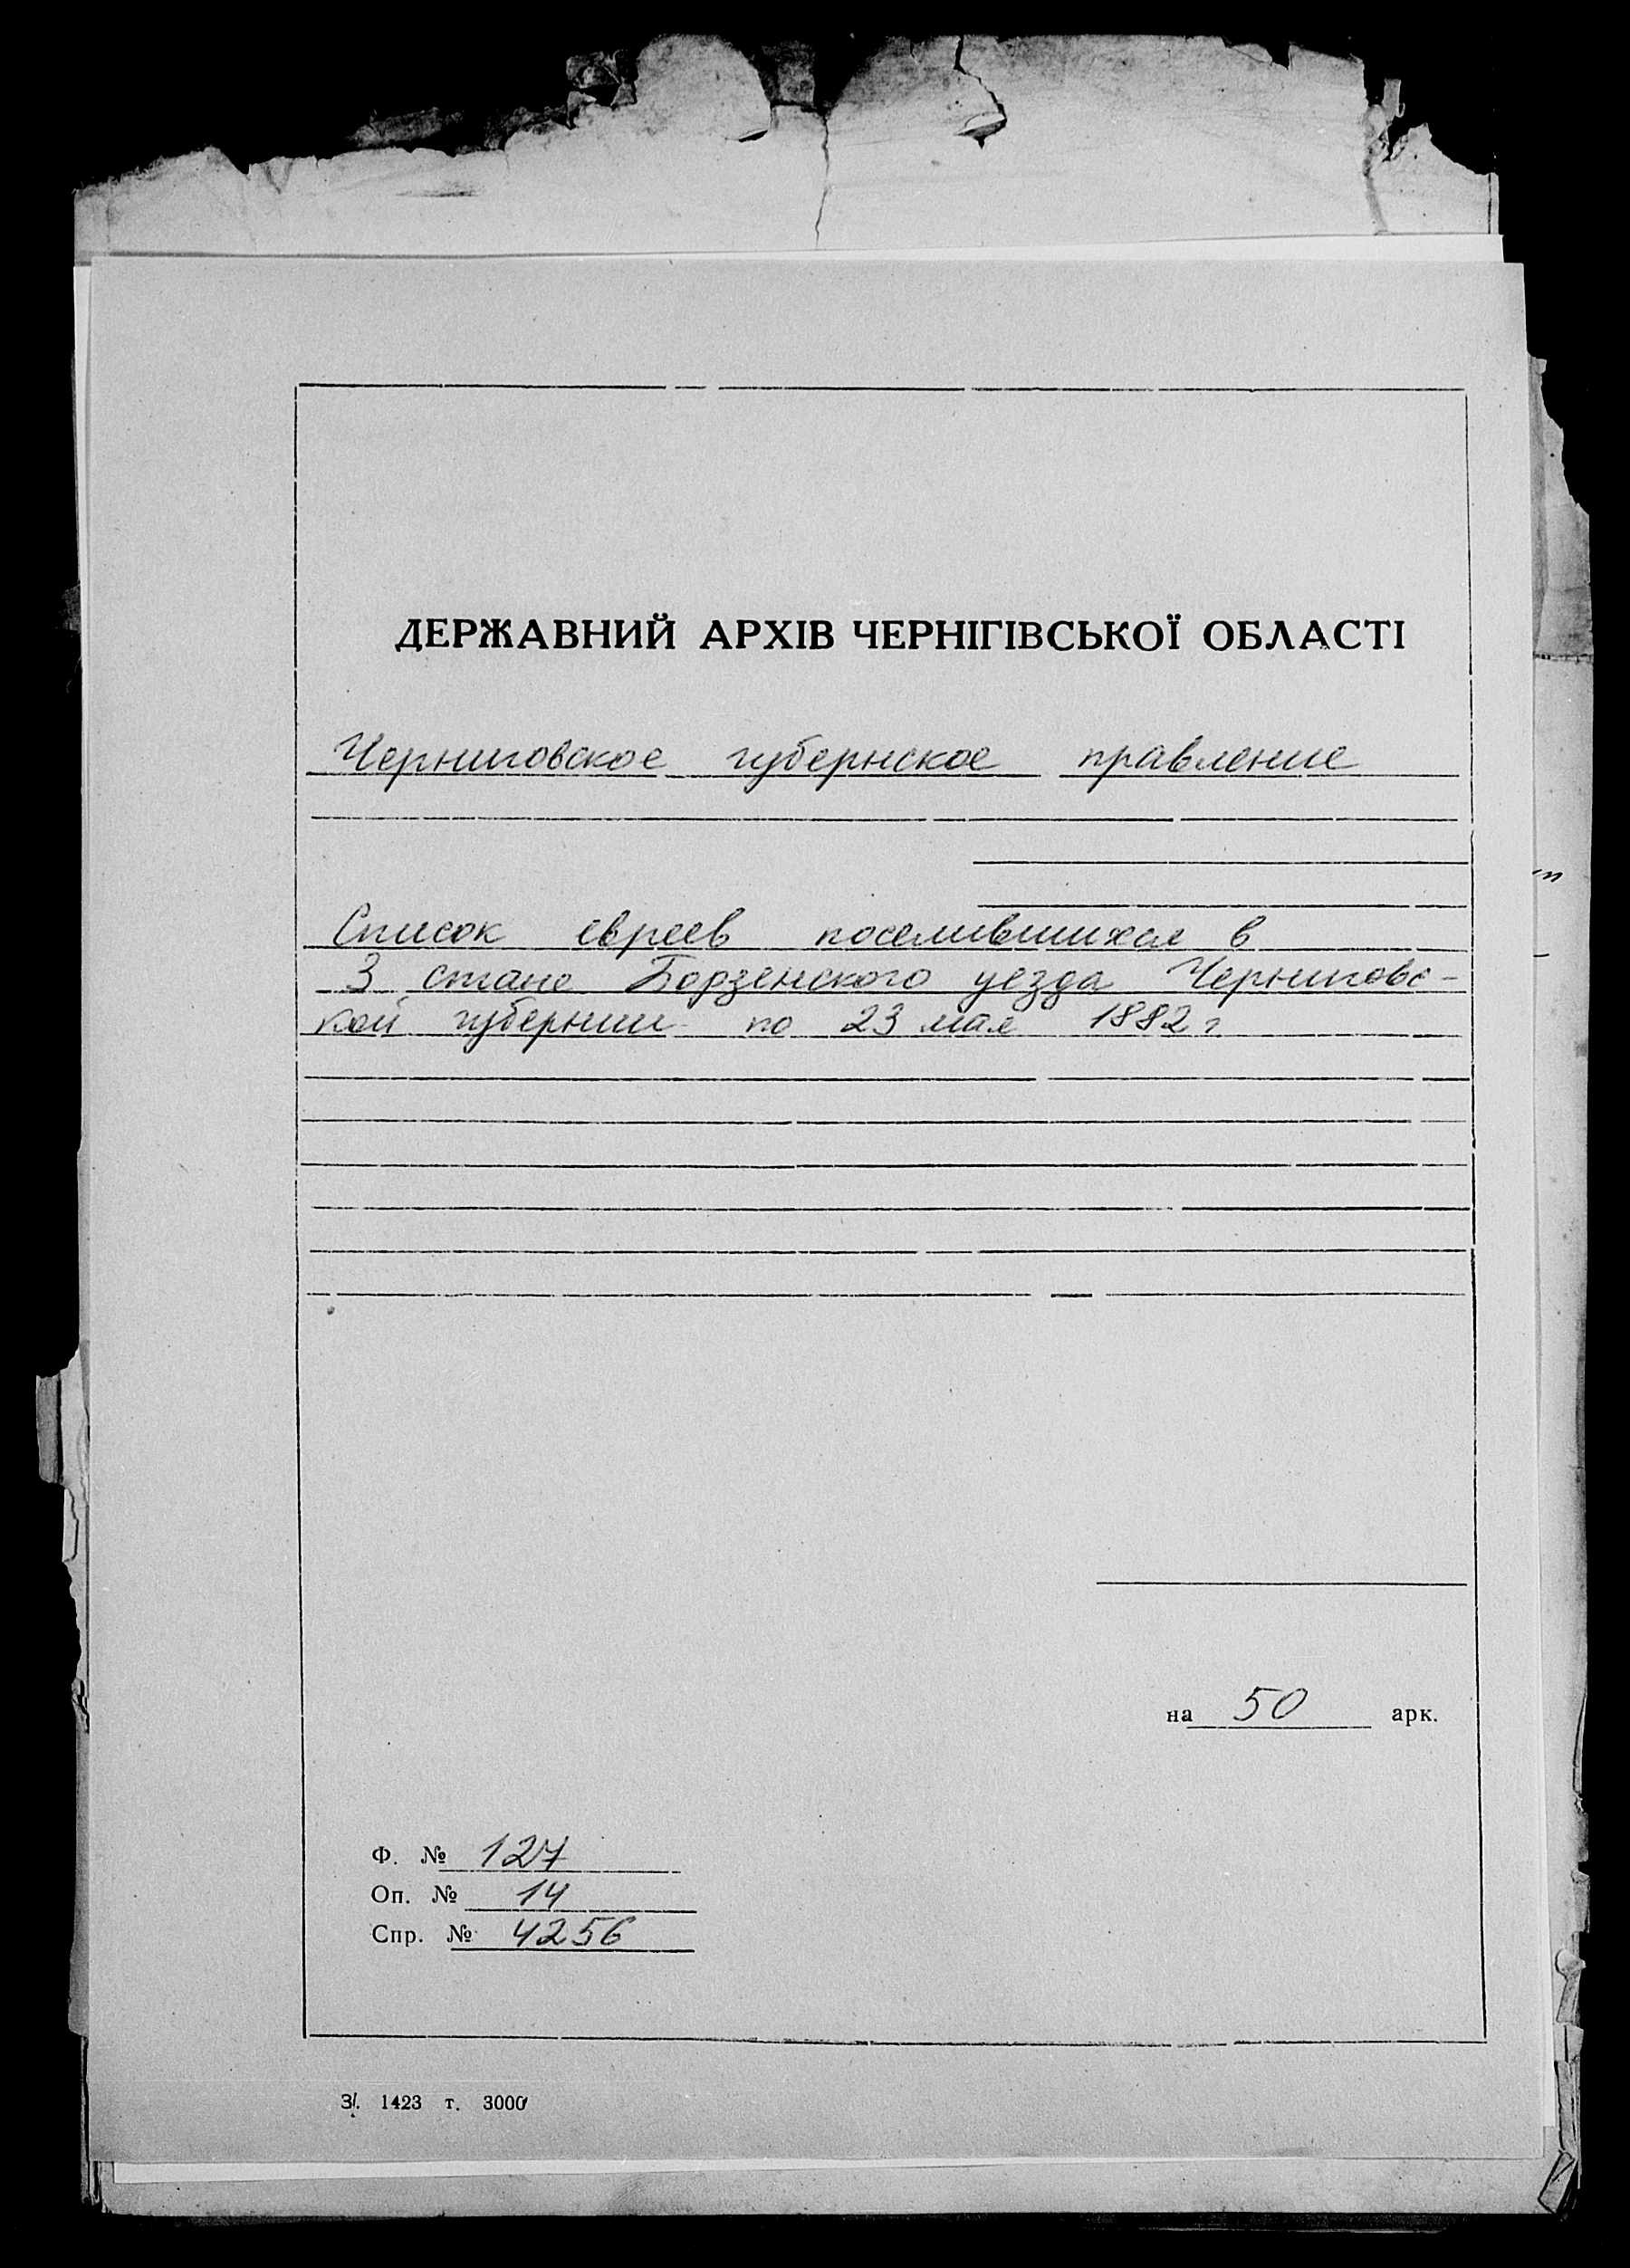 ДЕРЖАВНИЙ АРХІВ ЧЕРНІГІВСЬКОЇ ОБЛАСТІ
Черниговское губернское правление
Список евреев поселившихся в
3 стане Борзенского уезда Черниговс-
кой губернии по 23 мая 1882 г
на 50 арк.
Ф. № 127
Оп. № 14
Спр. № 4256
З. 1423 т. 3000